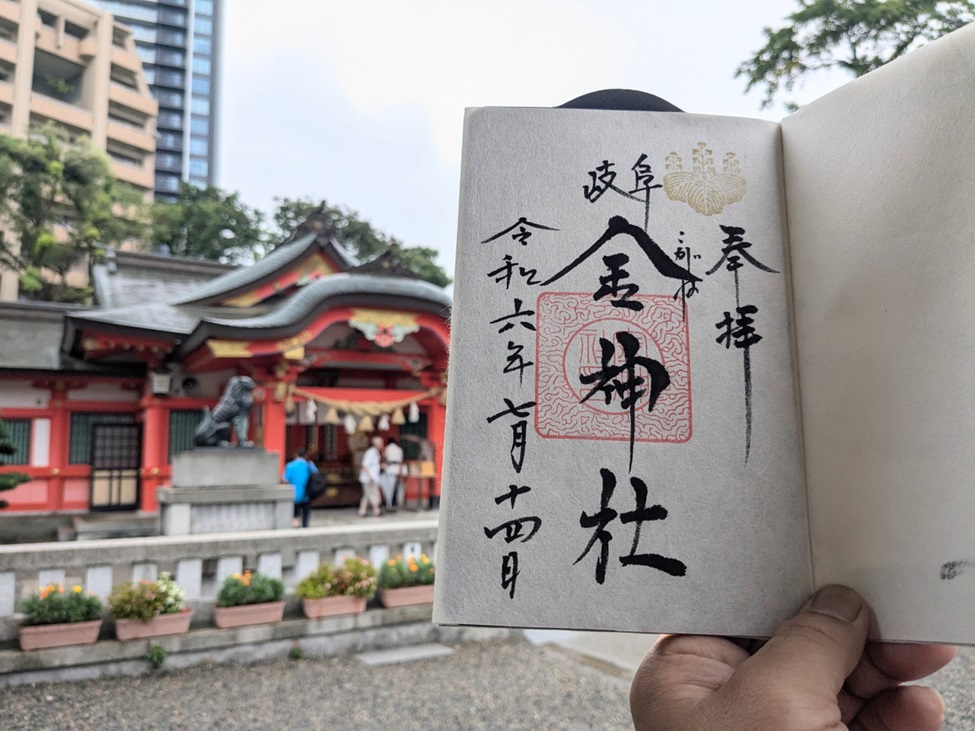 奉拝
岐阜
こがね
金神社
令和六年七月十四日